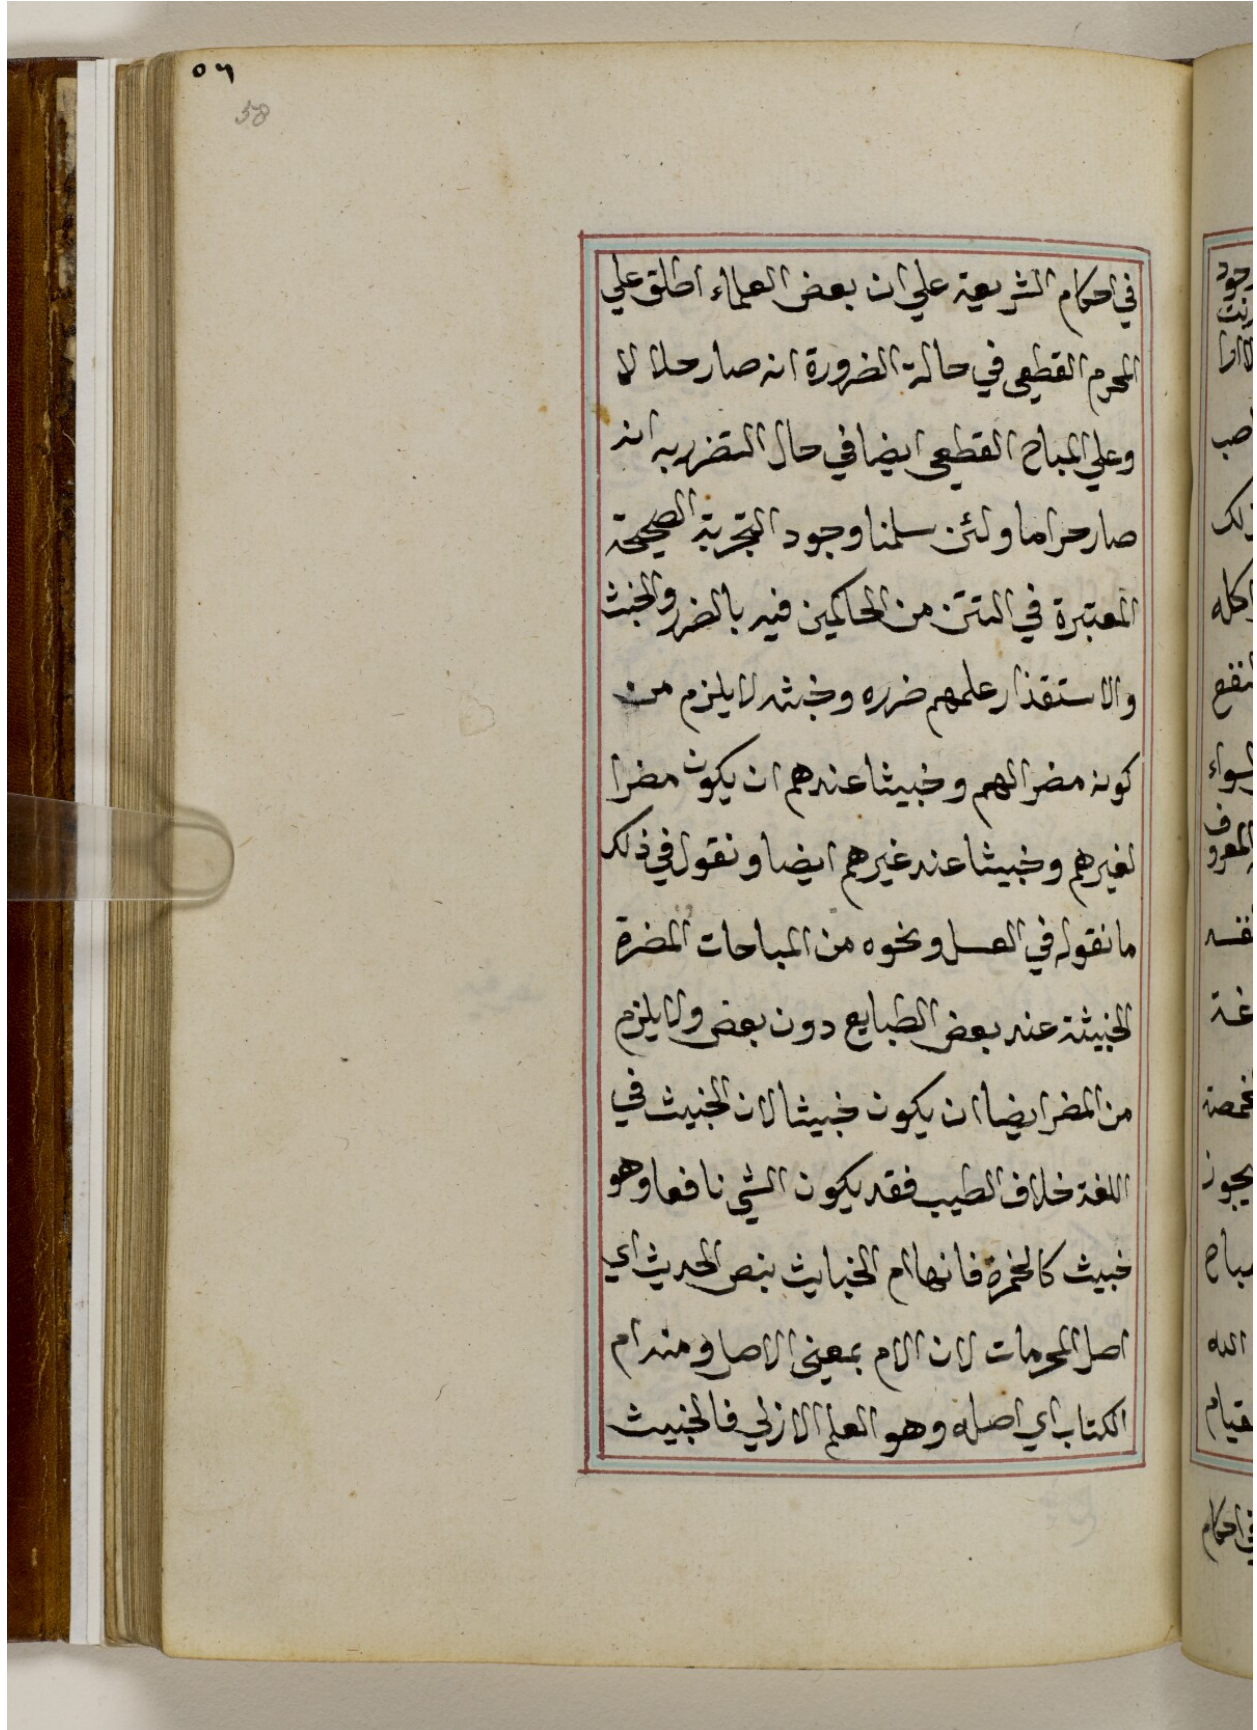 ٥٦
58
في احكام الشريعة علي ان بعض العلماء اطلق علي
المحرم القطعي في حالة الضرورة انه صار حلالا
وعلي المباح القطعي ايضا في حال التضرر به انه
صار حراما ولئن سلمنا وجود التجربة الصحيحة
المعتبرة في التتن من الحاكمين فيه بالضرر والخبث
والاستقذار علمهم ضرره وخبثه لا يلزم من
كونه مضرا لهم وخبيثا عندهم ان يكون مضرا
لغيرهم وخبيثا عند غيرهم ايضا ونقول في ذلك
ما نقوله في العسل ونحوه من المباحات المضرة
الخبيثة عند بعض الطبايع دون بعض ولا يلزم
من المضر ايضا ان يكون خبيثا لان الخبيث في
اللغة خلاف الطيب فقد يكون الشي نافعا وهو
خبيث كالخمرة فانها ام الخبايث بنص الحديث اي
اصل المحرمات لان الام بمعني الاصل ومنه ام
الكتاب اي اصله وهو العلم الازلي فالخبيث
في احكام